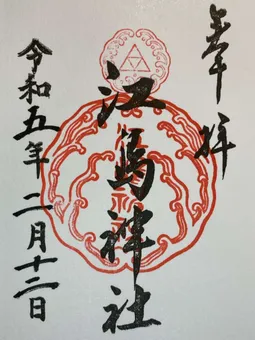 奉拝
江島神社
令和五年二月十二日